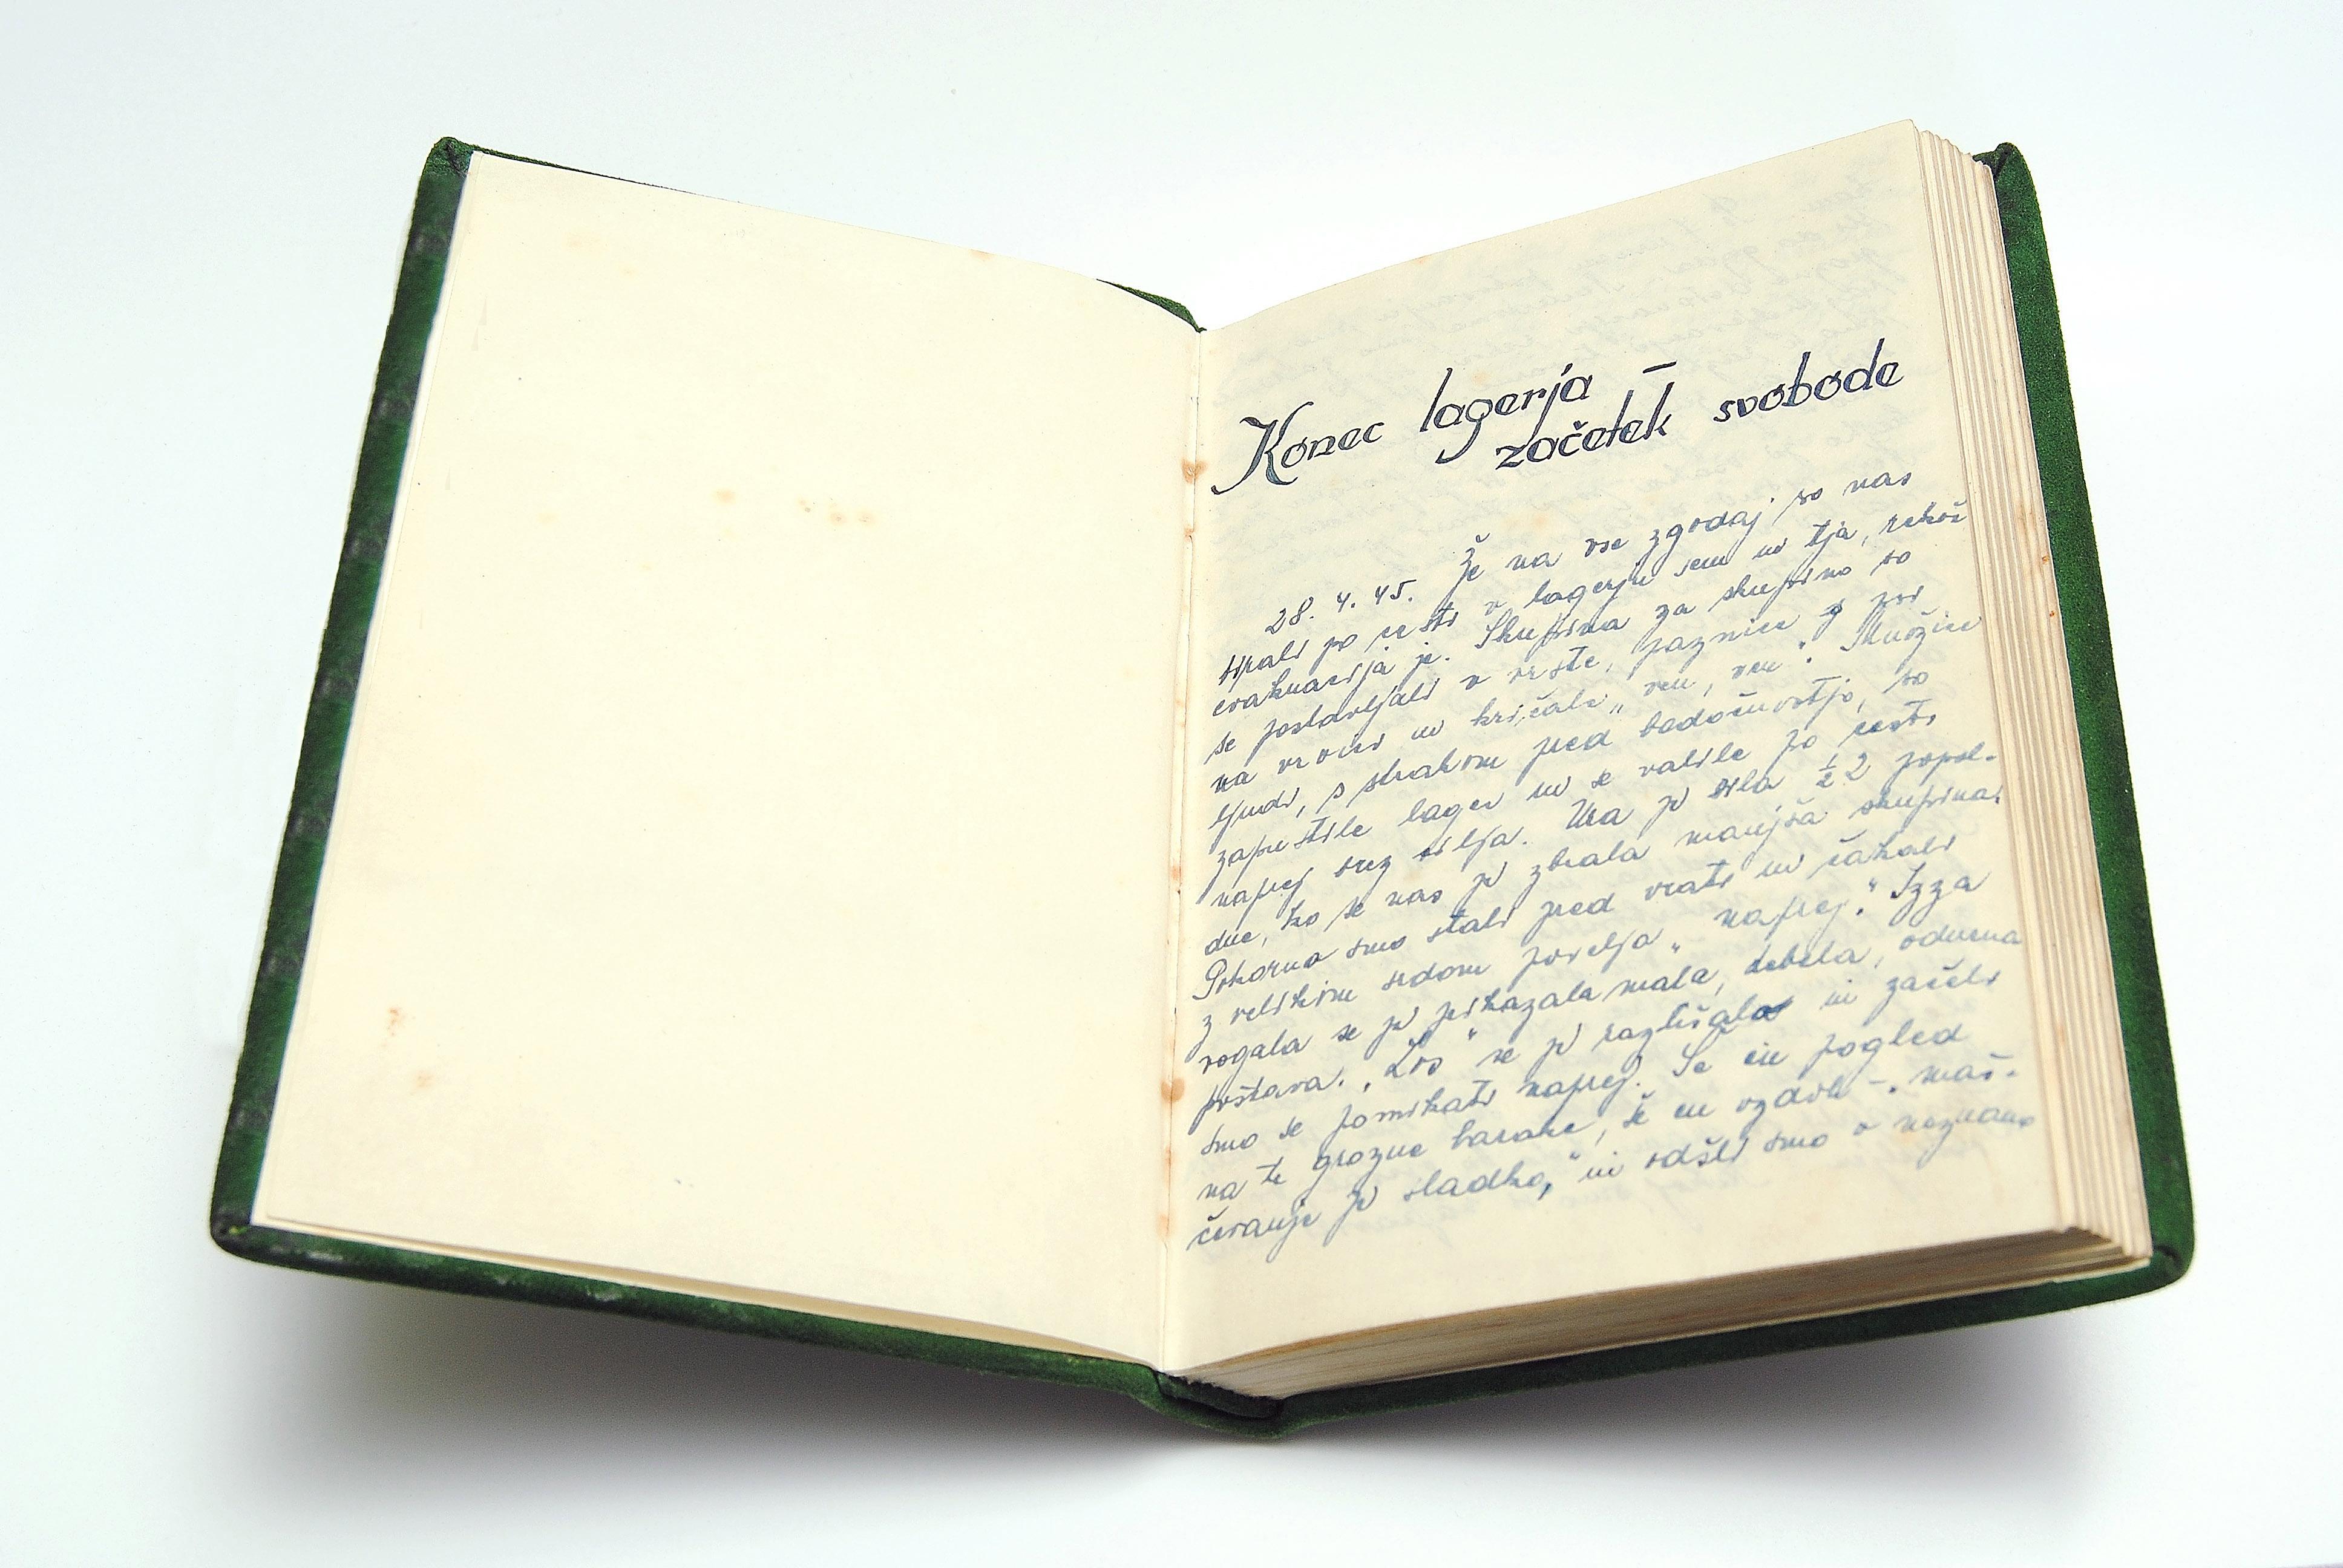 Konec lagerja –
začetek svobode
28. 4. 45. Že na vse zgodaj so nas
tirali po cesti v lagerju sem in tja, rekoč
evakuacija je. Skupina za skupino so
se postavljali v vrste, paznice z psi
na vrvici in kričale „ven, ven". Množice
ljudi, s strahom pred bodočnostjo, so
zapustile lager in se valile po cesti
naprej brez cilja. Ura je bila ½ 2 popol-
dne, ko se nas je zbrala manjša skupina.
Pokorno smo stali pred vrati in čakali
z velikim srdom povelja „naprej". Izza
vogala se je prikazala mala, debela, odurna
poštava. „Los" se je razlišalo in začeli
smo se pomikati naprej. Še en pogled
na te grozne barake, še en vzdih –. „maš-
čevanje je sladko," in odšli smo v neznano